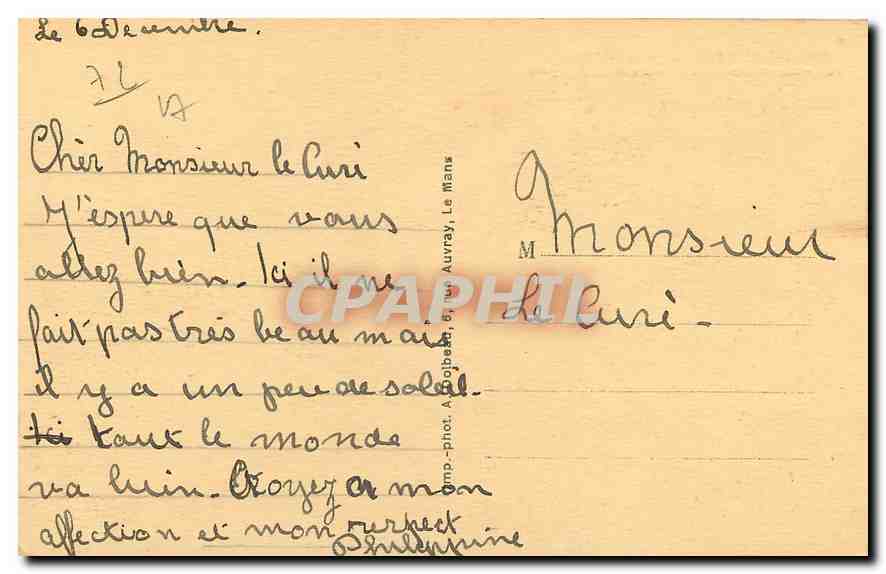 Le 6 Decembre.
72
VA
Chèr Monsieur le Curé
J'éspere que vous
allez bien. Ici il ne
fait pas trés beau mais
il y a un peu de soleil.
Ici tout le monde
va bien. Croyez a mon
affection et mon respect
Philippine
Imp.-phot. A. Dolbeau, 6, rue Auvray, Le Mans
M Monsieur
Le Curé -
CPAPHIL